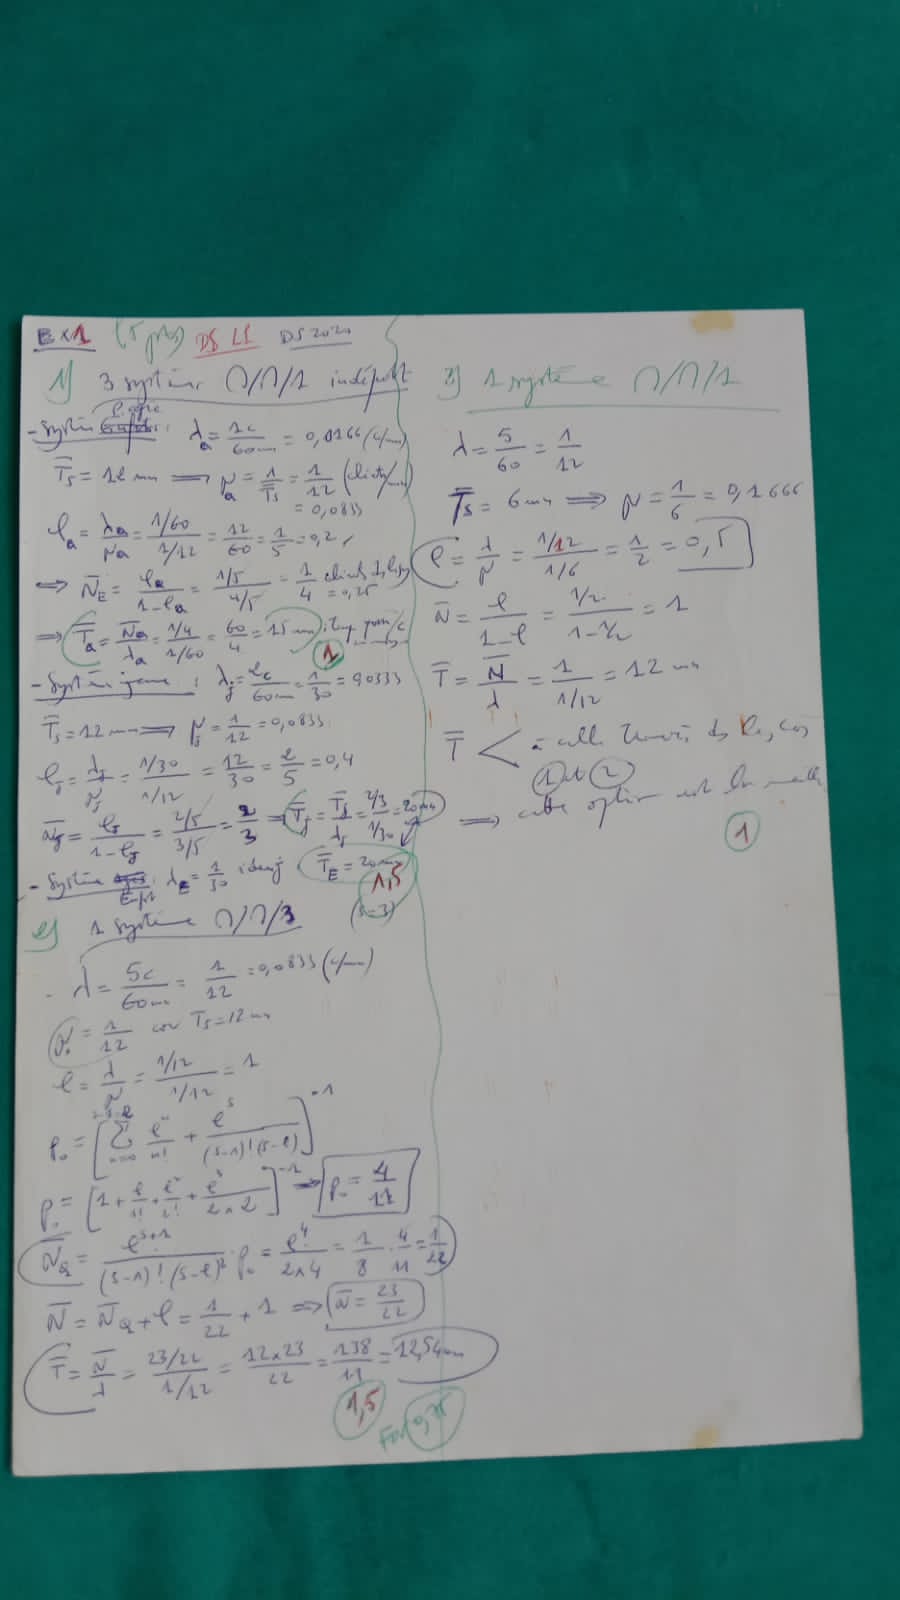 Ex1 (5 pts) DS LI DS 2020
1) 3 systèmes M/M/1 indépdt
- Système P. âgée : λa = 1c/60mn = 0,0166 (c/mn)
T̄s = 12 mn ⟹ μa = 1/T̄s = 1/12 (clients/mn)
= 0,0833
ρa = λa/μa = (1/60)/(1/12) = 12/60 = 1/5 = 0,2
⟹ N̄E = ρa/(1-ρa) = (1/5)/(4/5) = 1/4 = 0,25
⟹ T̄a = N̄a/λa = (1/4)/(1/60) = 60/4 = 15 mn
1
- Système jeune : λj = 2c/60mn = 1/30 = 0,0333
T̄s = 12 mn ⟹ μs = 1/12 = 0,0833
ρj = λj/μj = (1/30)/(1/12) = 12/30 = 2/5 = 0,4
N̄j = ρj/(1-ρj) = (2/5)/(3/5) = 2/3 ⟹ T̄j = /λj = (2/3)/(1/30) = 20mn
- Système : λE = 1/30 idem j T̄E = 20mn
1,5
2) 1 système M/M/3 (s=3)
- λ = 5c/60mn = 1/12 = 0,0833 (c/mn)
μ = 1/12 car Ts = 12 mn
ρ = λ/μ = (1/12)/(1/12) = 1
p₀ = [Σ n=0 ρⁿ/n! + ρˢ/((s-1)!(s-ρ))]⁻¹
p₀ = [1 + ρ/1! + ρ²/2! + ρ³/(2×2)]⁻¹ ⟹ p₀ = 4/11
N̄Q = ρˢ⁺¹/((s-1)!(s-ρ)²) · p₀ = ρ⁴/(2×4) = 1/8 · 4/11 = 1/22
N̄ = N̄Q + ρ = 1/22 + 1 ⟹ N̄ = 23/22
T̄ = N̄/λ = (23/22)/(1/12) = (12×23)/22 = 138/11 = 12,54mn
1,5
0,75
3) 1 système M/M/1
λ = 5/60 = 1/12
T̄s = 6mn ⟹ μ = 1/6 = 0,1666
ρ = λ/μ = (1/12)/(1/6) = 1/2 = 0,5
N̄ = ρ/(1-ρ) = (1/2)/(1-1/2) = 1
T̄ = N̄/λ = 1/(1/12) = 12 mn
T̄ < à celle trouvée ds les cas
1 et 2
⟹ cette option est la meill
1